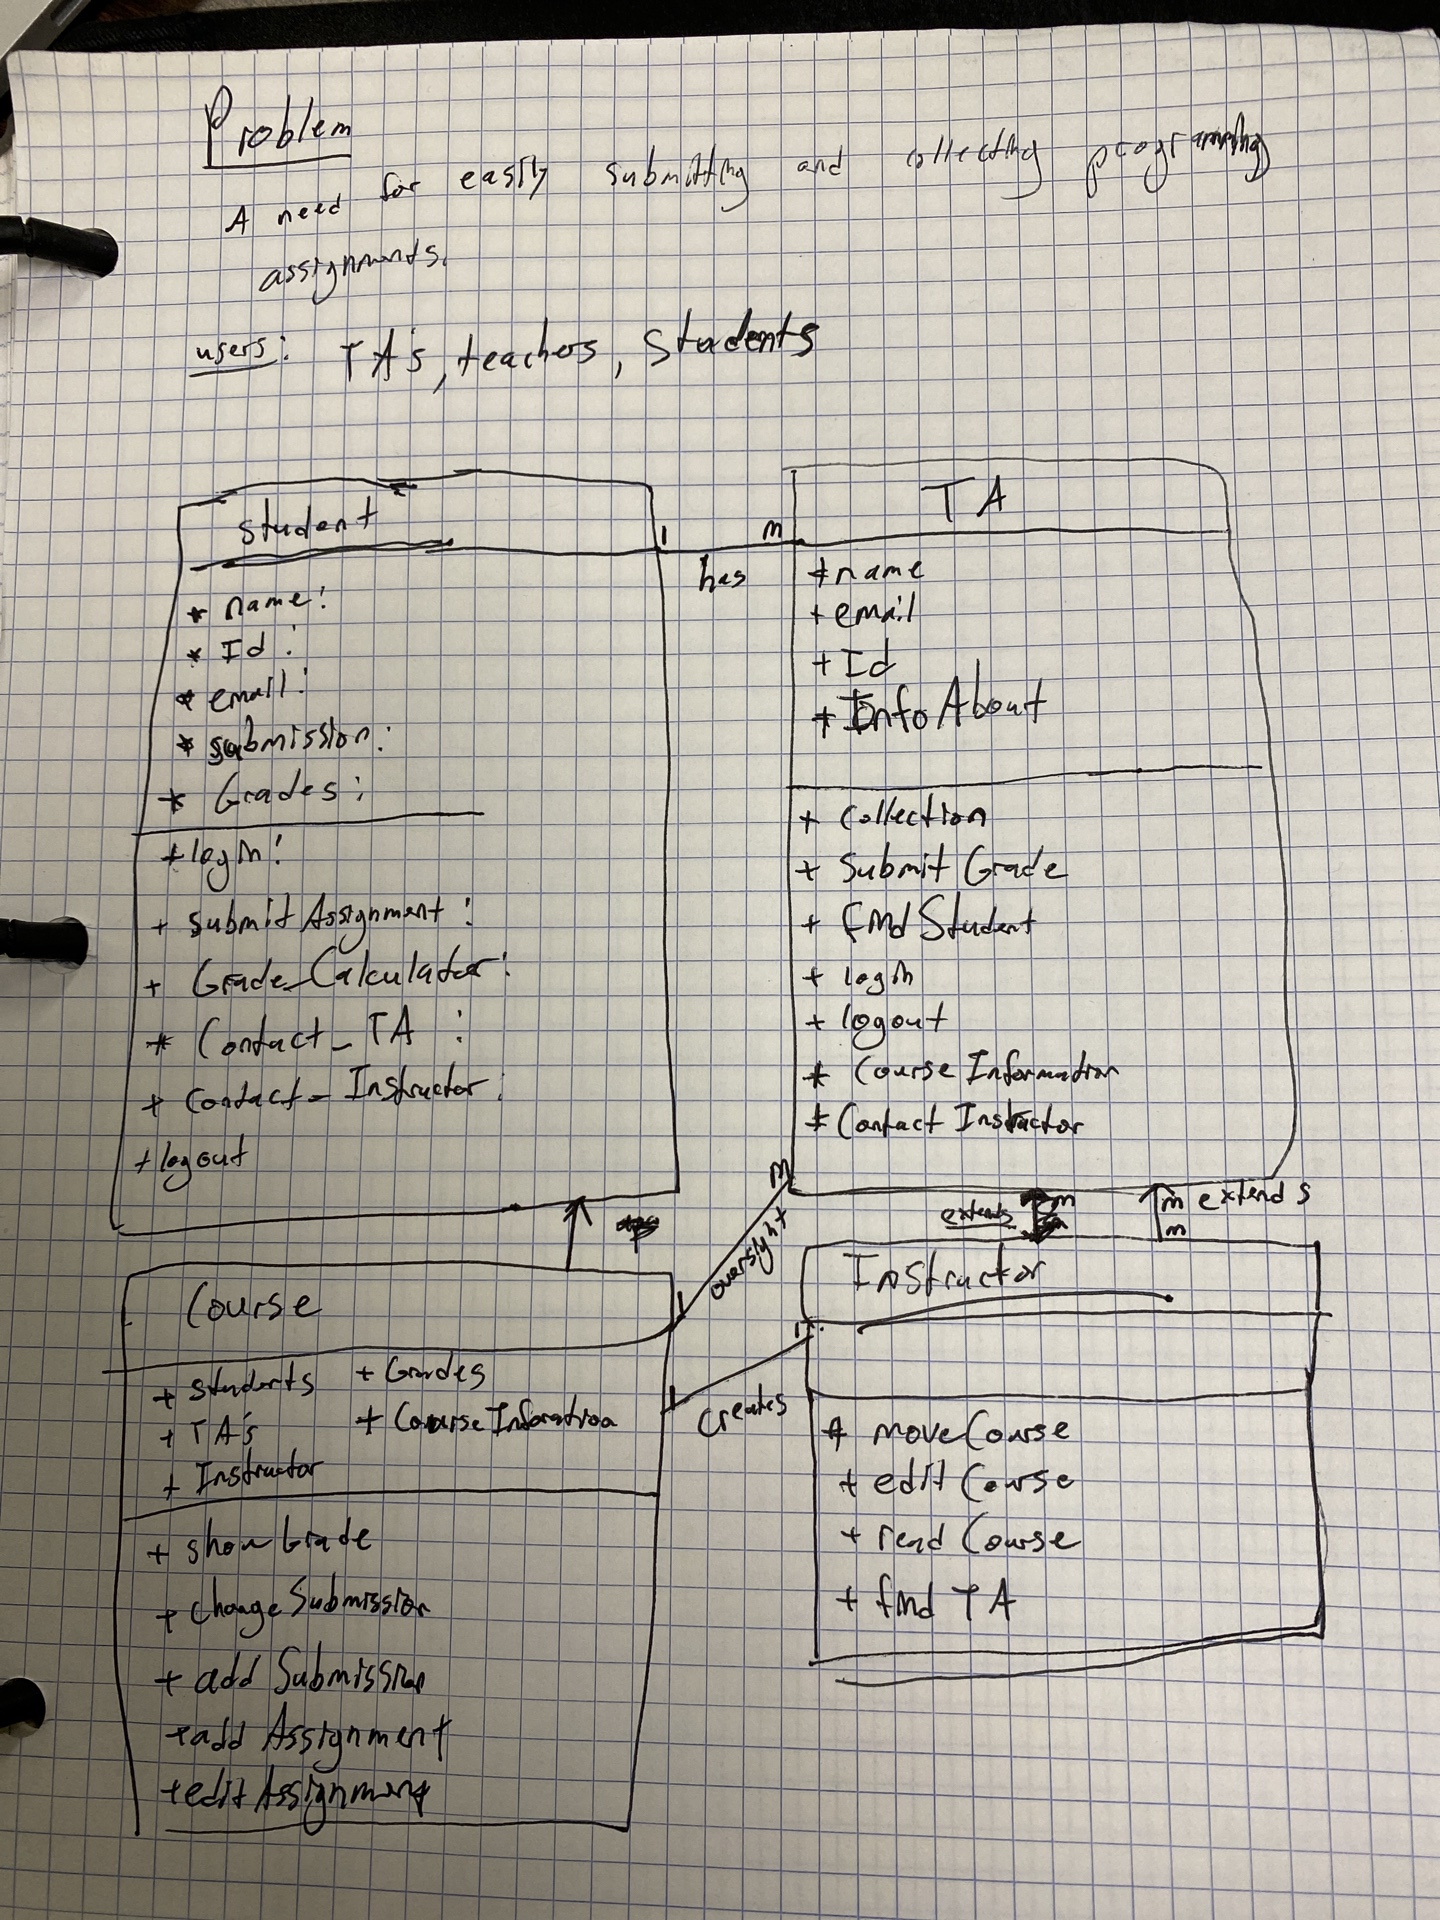 Problem
A need for easily submitting and collecting programming
assignments.
users: TA's, teachers, Students
Student
* name:
* Id :
* email:
* submission:
* Grades:
+ login:
+ submit Assignment :
+ Grade_Calculator:
* Contact_TA :
+ Contact_Instructor:
+ logout
1 m
has
TA
+ name
+ email
+ Id
+ Info About
+ Collection
+ Submit Grade
+ find Student
+ login
+ logout
* Course Information
* Contact Instructor
m
oversight
1
extends m
m extends
m
Course
+ Students + Grades
+ TA's + Course Information
+ Instructor
+ show Grade
+ change Submission
+ add Submission
+ add Assignment
+ edit Assignment
creates
Instructor
+ move Course
+ edit Course
+ read Course
+ find TA